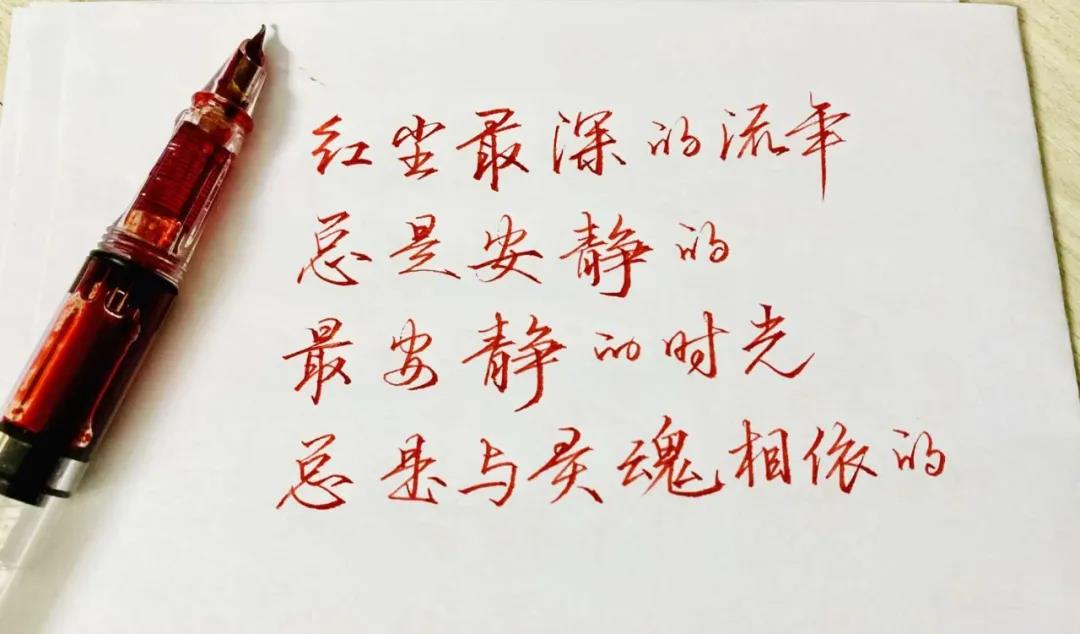 红尘最深的流年
总是安静的
最安静的时光
总是与灵魂相依的